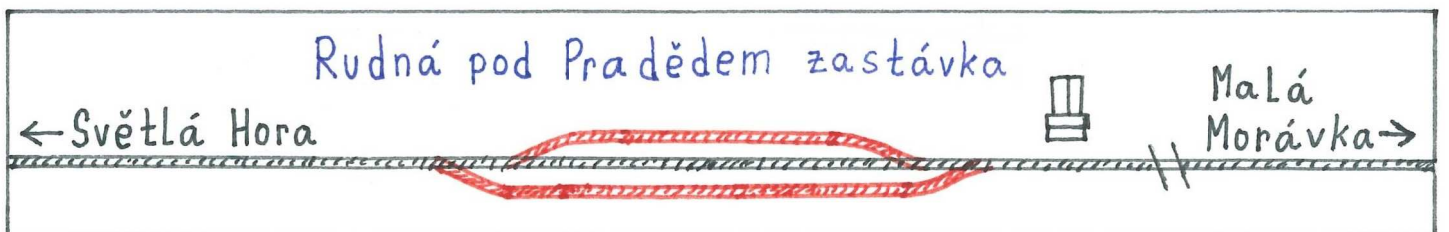 Rudná pod Pradědem zastávka
←Světlá Hora
Malá
Morávka→